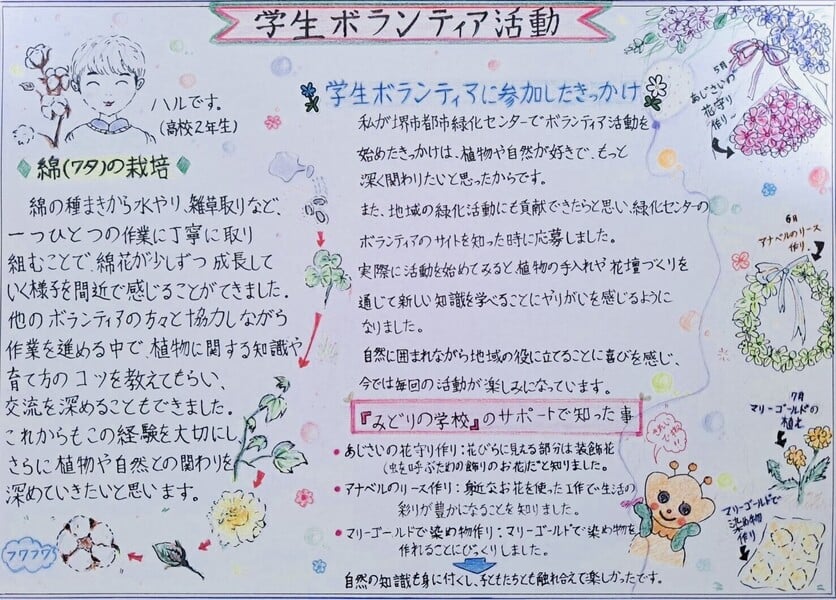 学生ボランティア活動
ハルです。
(高校2年生)
綿(ワタ)の栽培
綿の種まきから水やり、雑草取りなど、
一つひとつの作業に丁寧に取り
組むことで、綿花が少しずつ成長して
いく様子を間近で感じることができました。
他のボランティアの方々と協力しながら
作業を進める中で、植物に関する知識や
育て方のコツを教えてもらい、
交流を深めることもできました。
これからもこの経験を大切にし、
さらに植物や自然との関わりを
深めていきたいと思います。
フワフワ
学生ボランティアに参加したきっかけ
私が堺市都市緑化センターでボランティア活動を
始めたきっかけは、植物や自然が好きで、もっと
深く関わりたいと思ったからです。
また、地域の緑化活動にも貢献できたらと思い、緑化センターの
ボランティアのサイトを知った時に応募しました。
実際に活動を始めてみると、植物の手入れや花壇づくりを
通じて新しい知識を学べることにやりがいを感じるように
なりました。
自然に囲まれながら地域の役に立てることに喜びを感じ、
今では毎回の活動が楽しみになっています。
『みどりの学校』のサポートで知った事
・あじさいの花守り作り:花びらに見える部分は装飾花
(虫を呼ぶための飾りのお花)だと知りました。
・アナベルのリース作り:身近なお花を使った工作で生活の
彩りが豊かになることを知りました。
・マリーゴールドで染め物作り:マリーゴールドで染め物を
作れることにびっくりしました。
自然の知識も身に付くし、子どもたちとも触れ合えて楽しかったです。
5月
あじさいの
花守り
作り
6月
アナベルのリース
作り
7月
マリーゴールドの
植え
マリーゴールドで
染め物
作り